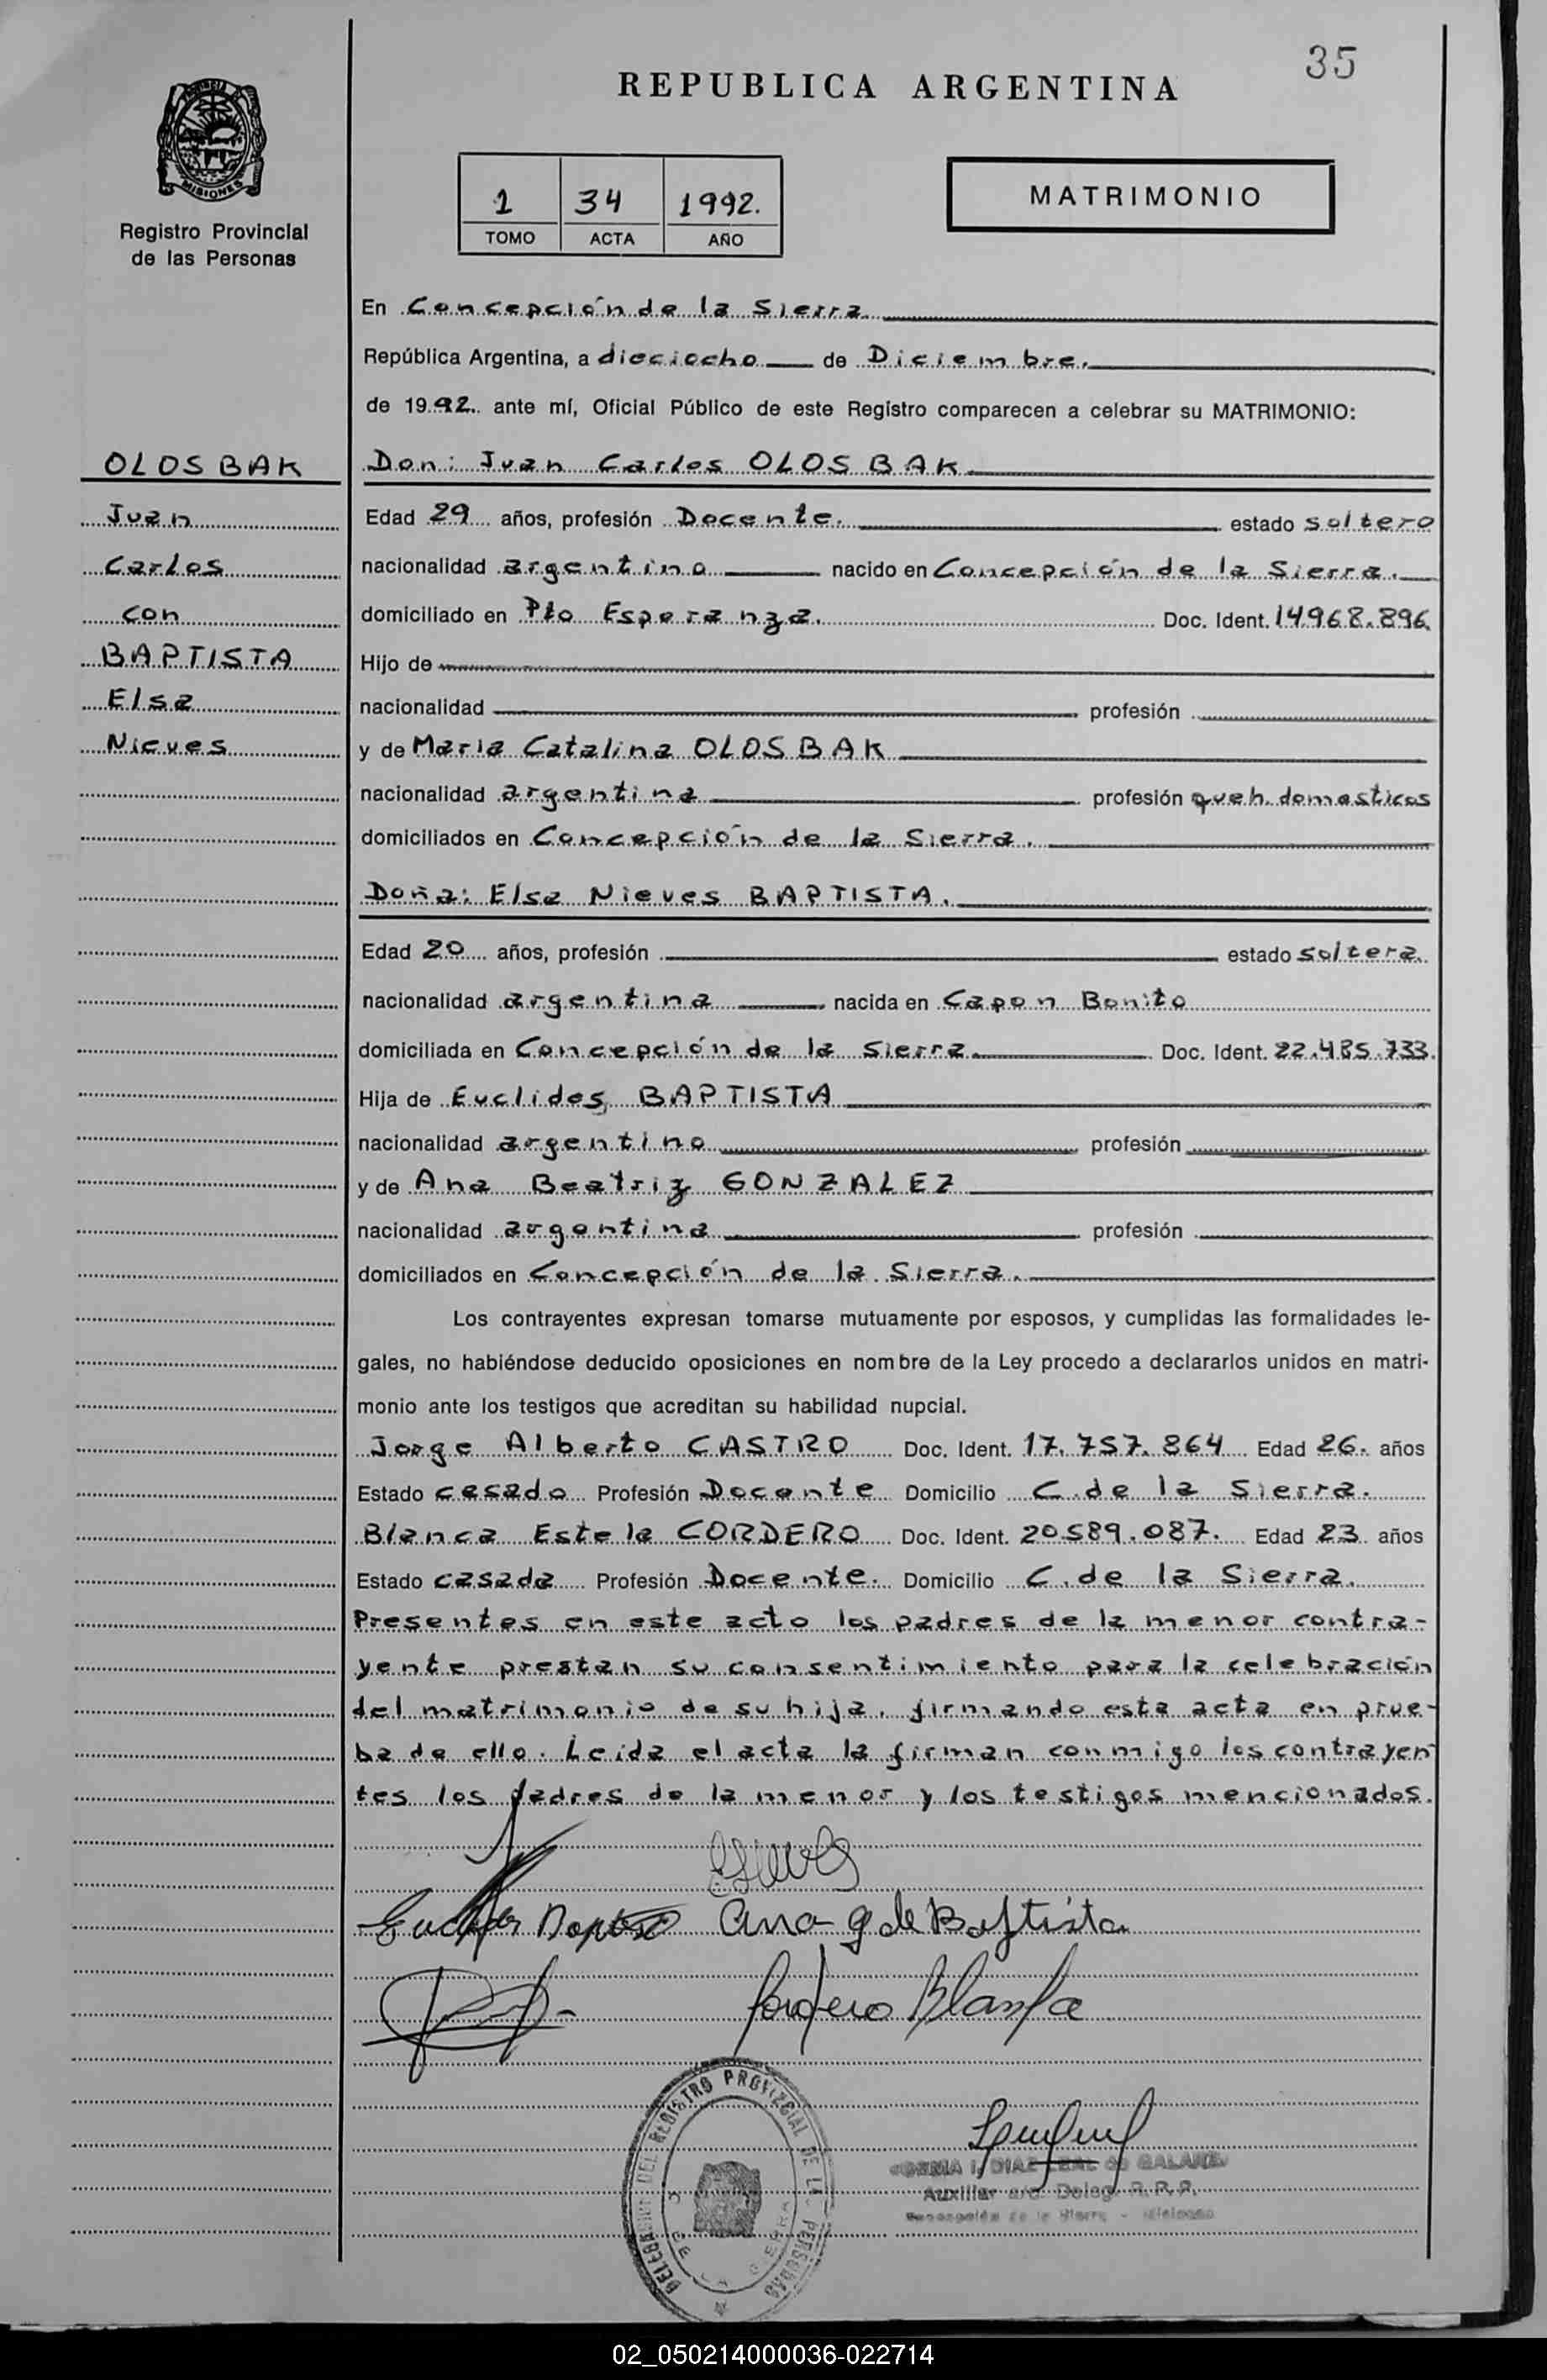 35
REPUBLICA ARGENTINA
MISIONES
Registro Provincial
de las Personas
1 34 1992.
TOMO ACTA AÑO
MATRIMONIO
En Concepción de la Sierra
República Argentina, a dieciocho de Diciembre.
de 1992. ante mí, Oficial Público de este Registro comparecen a celebrar su MATRIMONIO:
OLOSBAK
Juan
Carlos
con
BAPTISTA
Elsa
Nieves
Don: Juan Carlos OLOSBAK
Edad 29 años, profesión Docente. estado soltero
nacionalidad argentino nacido en Concepción de la Sierra.
domiciliado en Pto Esperanza. Doc. Ident. 14.968.896
Hijo de
nacionalidad profesión
y de Maria Catalina OLOSBAK
nacionalidad argentina profesión queh. domesticos
domiciliados en Concepción de la Sierra.
Doña: Elsa Nieves BAPTISTA.
Edad 20 años, profesión estado soltera.
nacionalidad argentina nacida en Capon Bonito
domiciliada en Concepción de la Sierra. Doc. Ident. 22.485.733.
Hija de Euclides BAPTISTA
nacionalidad argentino profesión
y de Ana Beatriz GONZALEZ
nacionalidad argentina profesión
domiciliados en Concepción de la Sierra.
Los contrayentes expresan tomarse mutuamente por esposos, y cumplidas las formalidades le-
gales, no habiéndose deducido oposiciones en nombre de la Ley procedo a declararlos unidos en matri-
monio ante los testigos que acreditan su habilidad nupcial.
Jorge Alberto CASTRO Doc. Ident. 17.757.864 Edad 26. años
Estado casado Profesión Docente Domicilio C. de la Sierra.
Blanca Estela CORDERO Doc. Ident. 20.589.087. Edad 23 años
Estado casada Profesión Docente. Domicilio C. de la Sierra.
Presentes en este acto los padres de la menor contra-
yente prestan su consentimiento para la celebración
del matrimonio de su hija, firmando esta acta en prue-
ba de ello. Leida el acta la firman conmigo los contrayen
tes los padres de la menor y los testigos mencionados.
Ana G de Baptista
Cordero Blanca
DELEGACION DEL REGISTRO PROVINCIAL DE LAS PERSONAS
C. DE LA SIERRA
I. DIAZ LEAL de
Auxiliar a/c. Deleg. R. P. P.
Concepción de la Sierra - Misiones
02_050214000036-022714